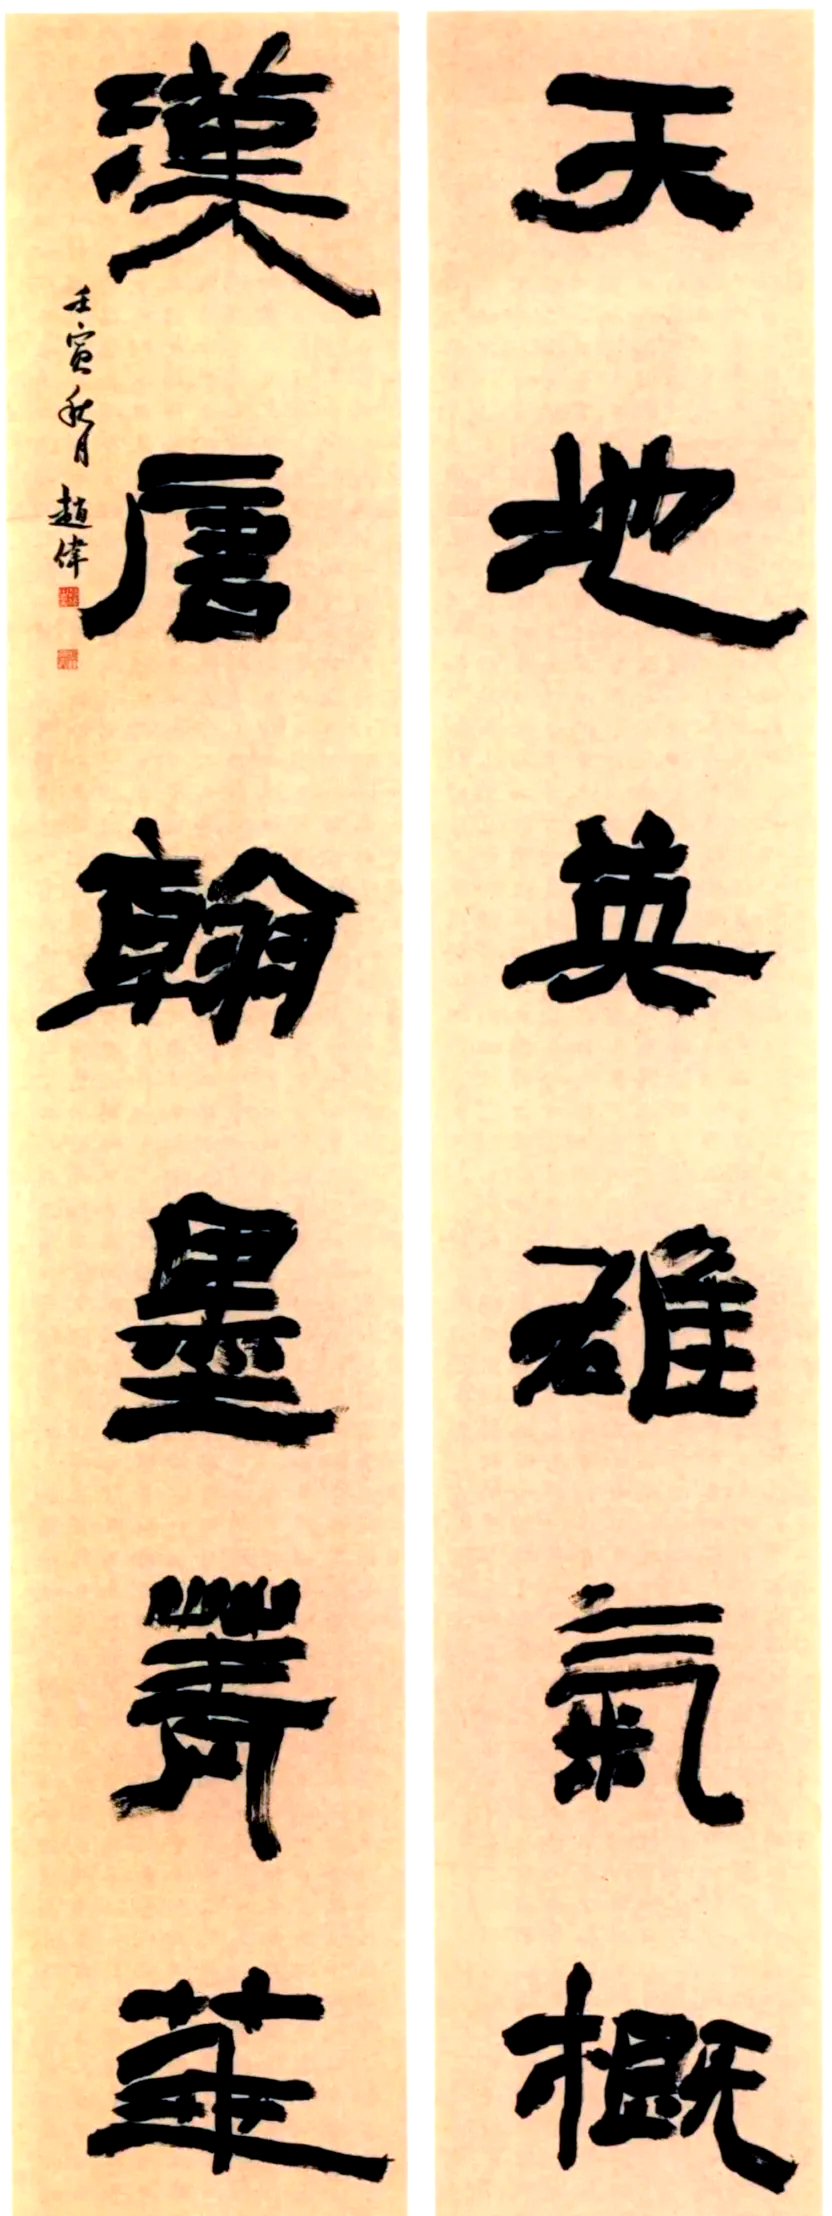 天地英雄氣概
漢唐翰墨菁華
壬寅秋月 趙偉